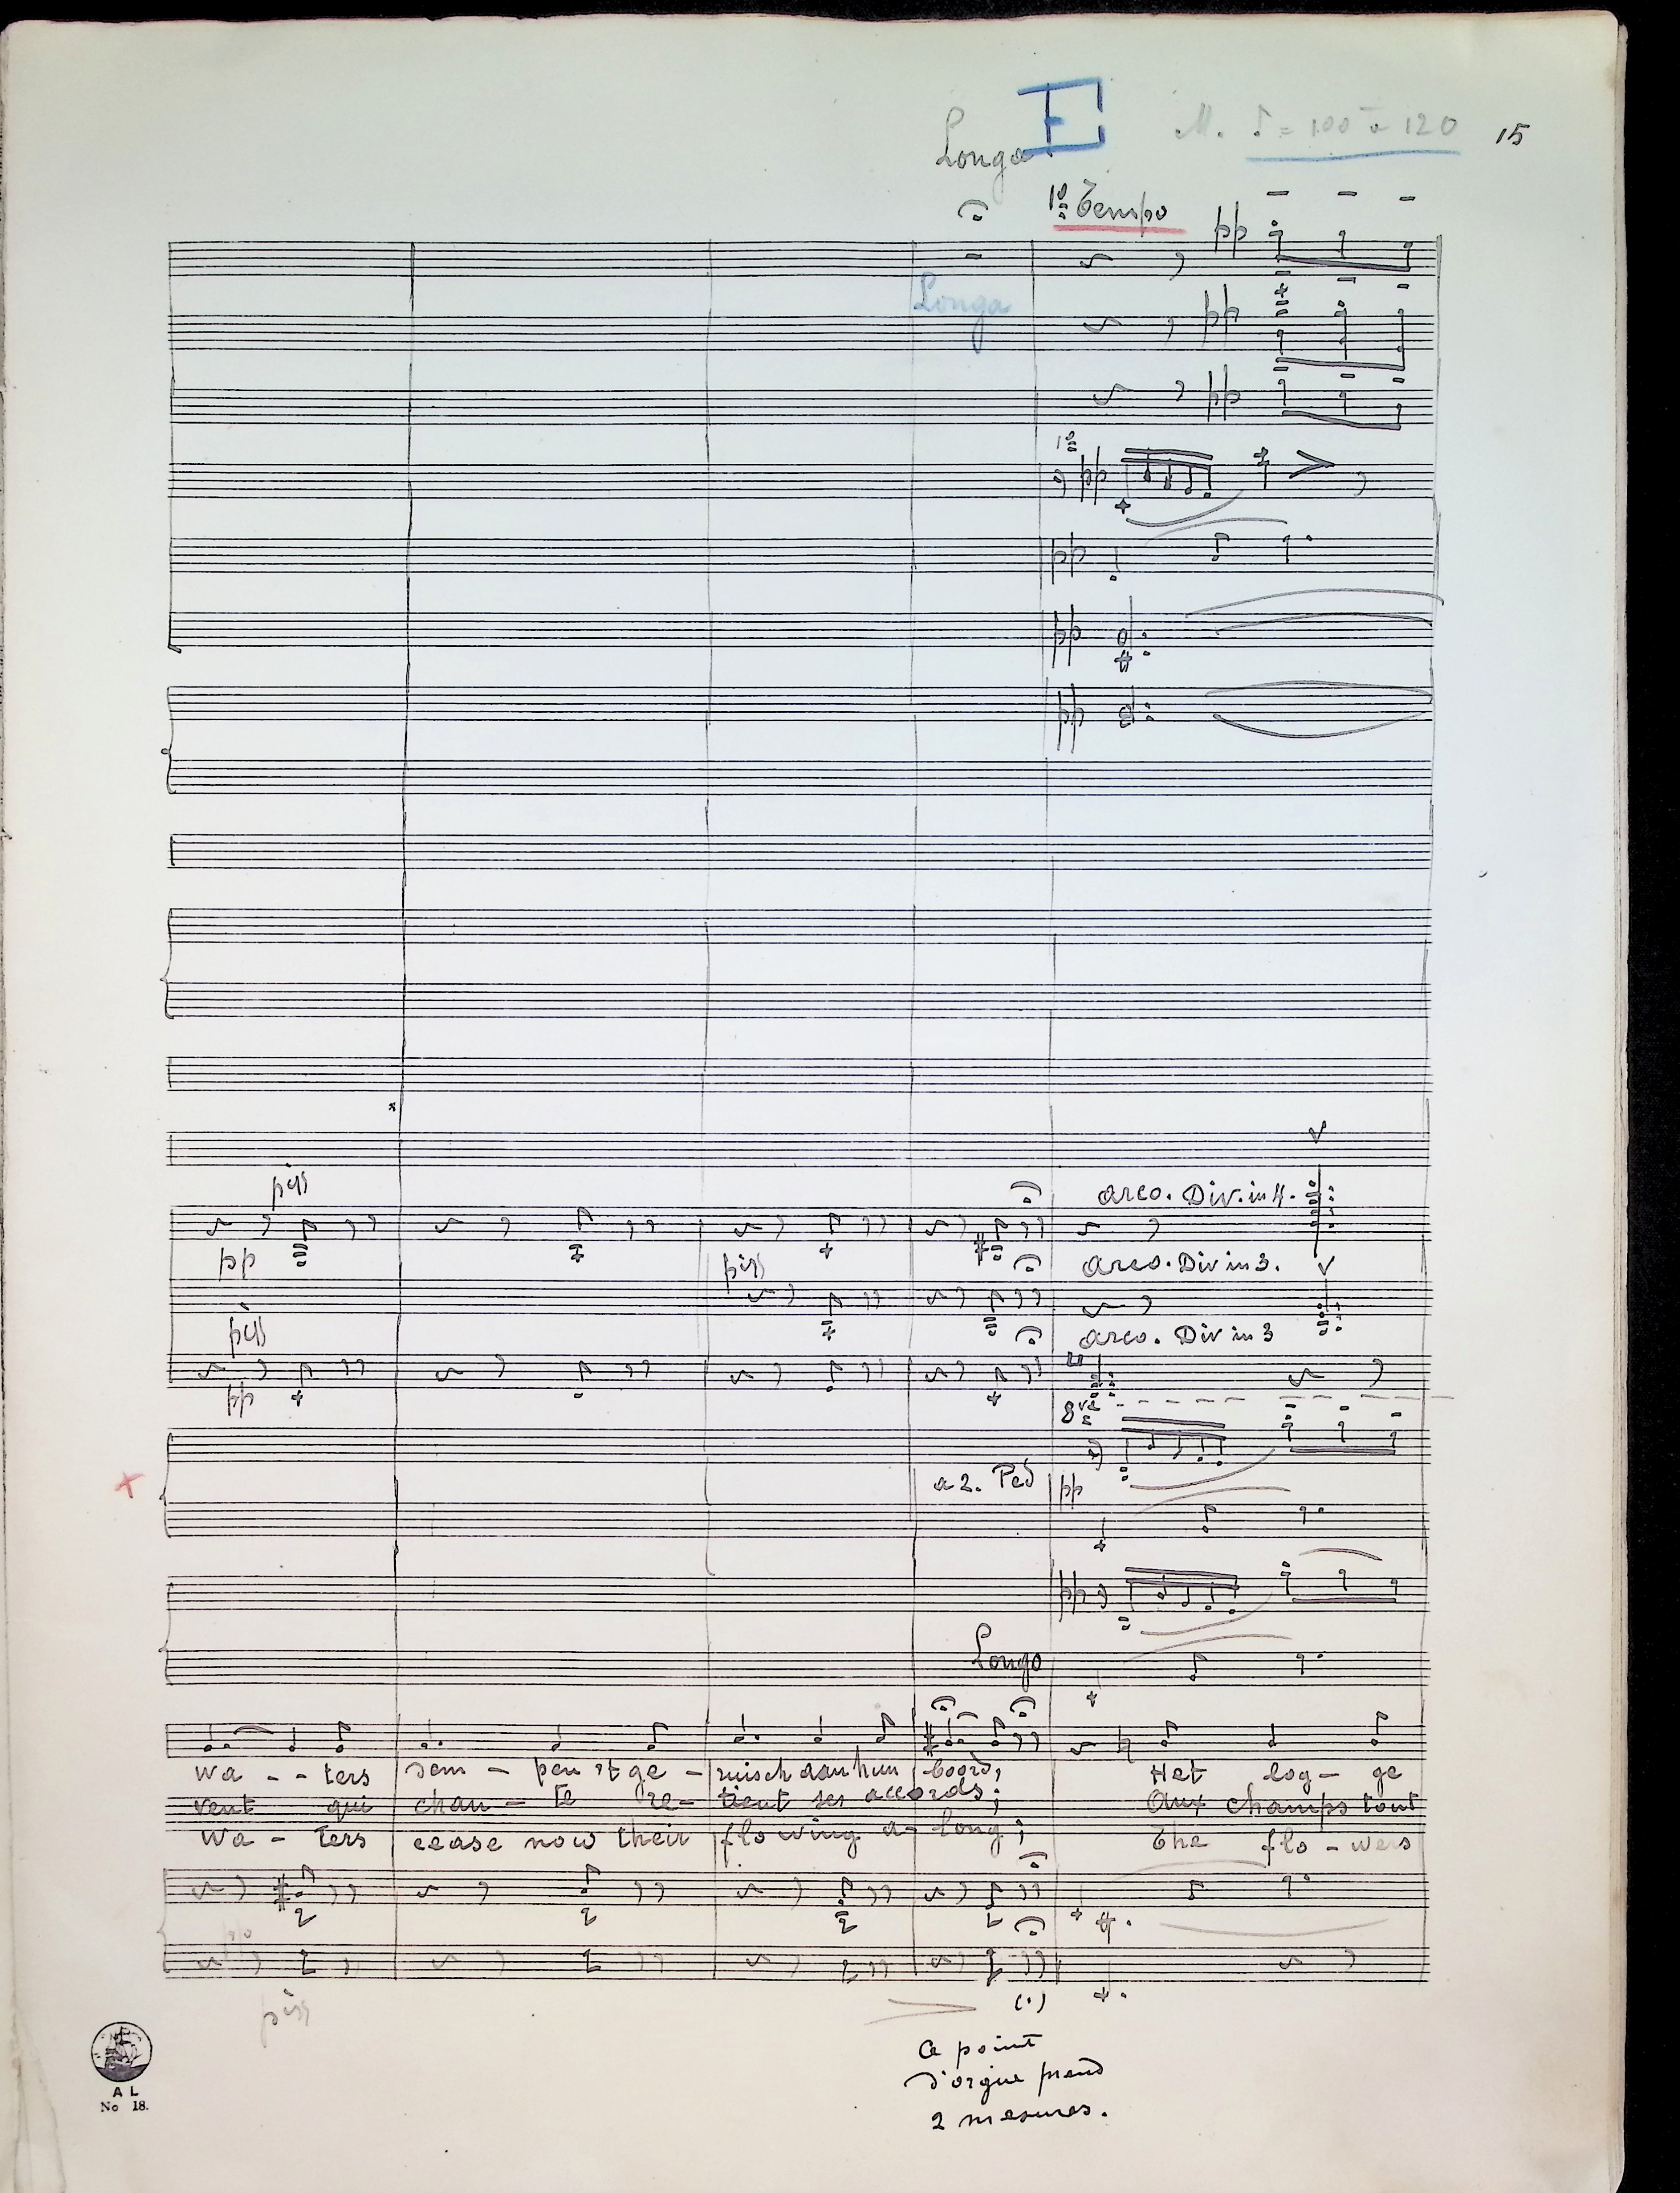 E
M. ♪ = 100 à 120
15
Longa
1º Tempo
pp
Longa
pp
pp
1º
pp
pp
pp
pp
pizz
arco. Div. in 4.
pp
pizz
arco. Div in 3.
pizz
arco. Div in 3
pp
8va
a 2. Ped
pp
pp
Longa
wa - - ters dem - pen 't ge - ruisch aan hun boord; Het log - ge
vent qui chan - te re - tient ses accords; Aux champs tout
wa - ters cease now their flowing a - long; The flo - wers
pp
pizz
(.)
Ce point
d'orgue prend
2 mesures.
A L
No 18.